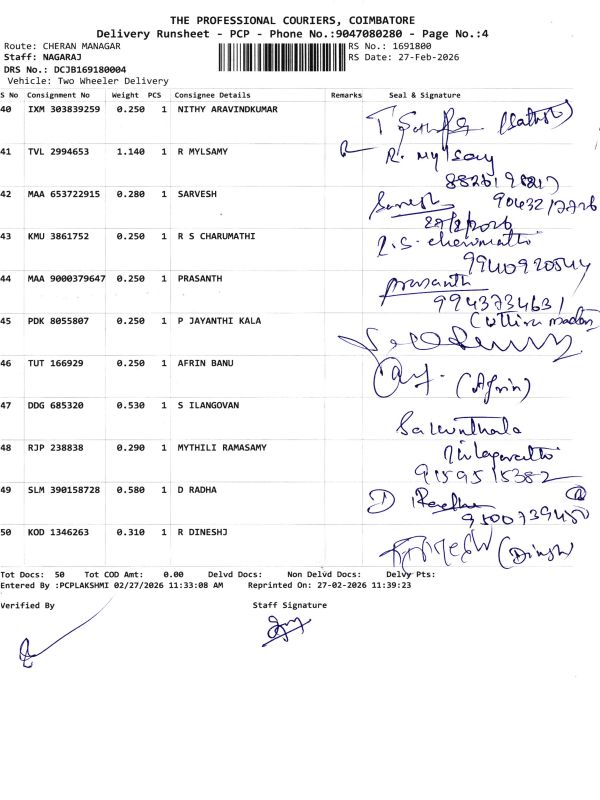 THE PROFESSIONAL COURIERS, COIMBATORE
Delivery Runsheet - PCP - Phone No.:9047080280 - Page No.:4
Route: CHERAN MANAGAR RS No.: 1691800
Staff: NAGARAJ RS Date: 27-Feb-2026
DRS No.: DCJB169180004
Vehicle: Two Wheeler Delivery
S No Consignment No Weight PCS Consignee Details Remarks Seal & Signature
40 IXM 303839259 0.250 1 NITHY ARAVINDKUMAR
41 TVL 2994653 1.140 1 R MYLSAMY R. Mylsamy
42 MAA 653722915 0.280 1 SARVESH Sarvesh
27/2/2026
43 KMU 3861752 0.250 1 R S CHARUMATHI R.S. charumathi
44 MAA 9000379647 0.250 1 PRASANTH prasanth
9943734631
45 PDK 8055807 0.250 1 P JAYANTHI KALA
46 TUT 166929 0.250 1 AFRIN BANU (Afrin)
47 DDG 685320 0.530 1 S ILANGOVAN Sakunthala
48 RJP 238838 0.290 1 MYTHILI RAMASAMY
9159515382
49 SLM 390158728 0.580 1 D RADHA D Radha
9500739450
50 KOD 1346263 0.310 1 R DINESHJ (Dinesh)
Tot Docs: 50 Tot COD Amt: 0.00 Delvd Docs: Non Delvd Docs: Delvy Pts:
Entered By :PCPLAKSHMI 02/27/2026 11:33:08 AM Reprinted On: 27-02-2026 11:39:23
Verified By Staff Signature